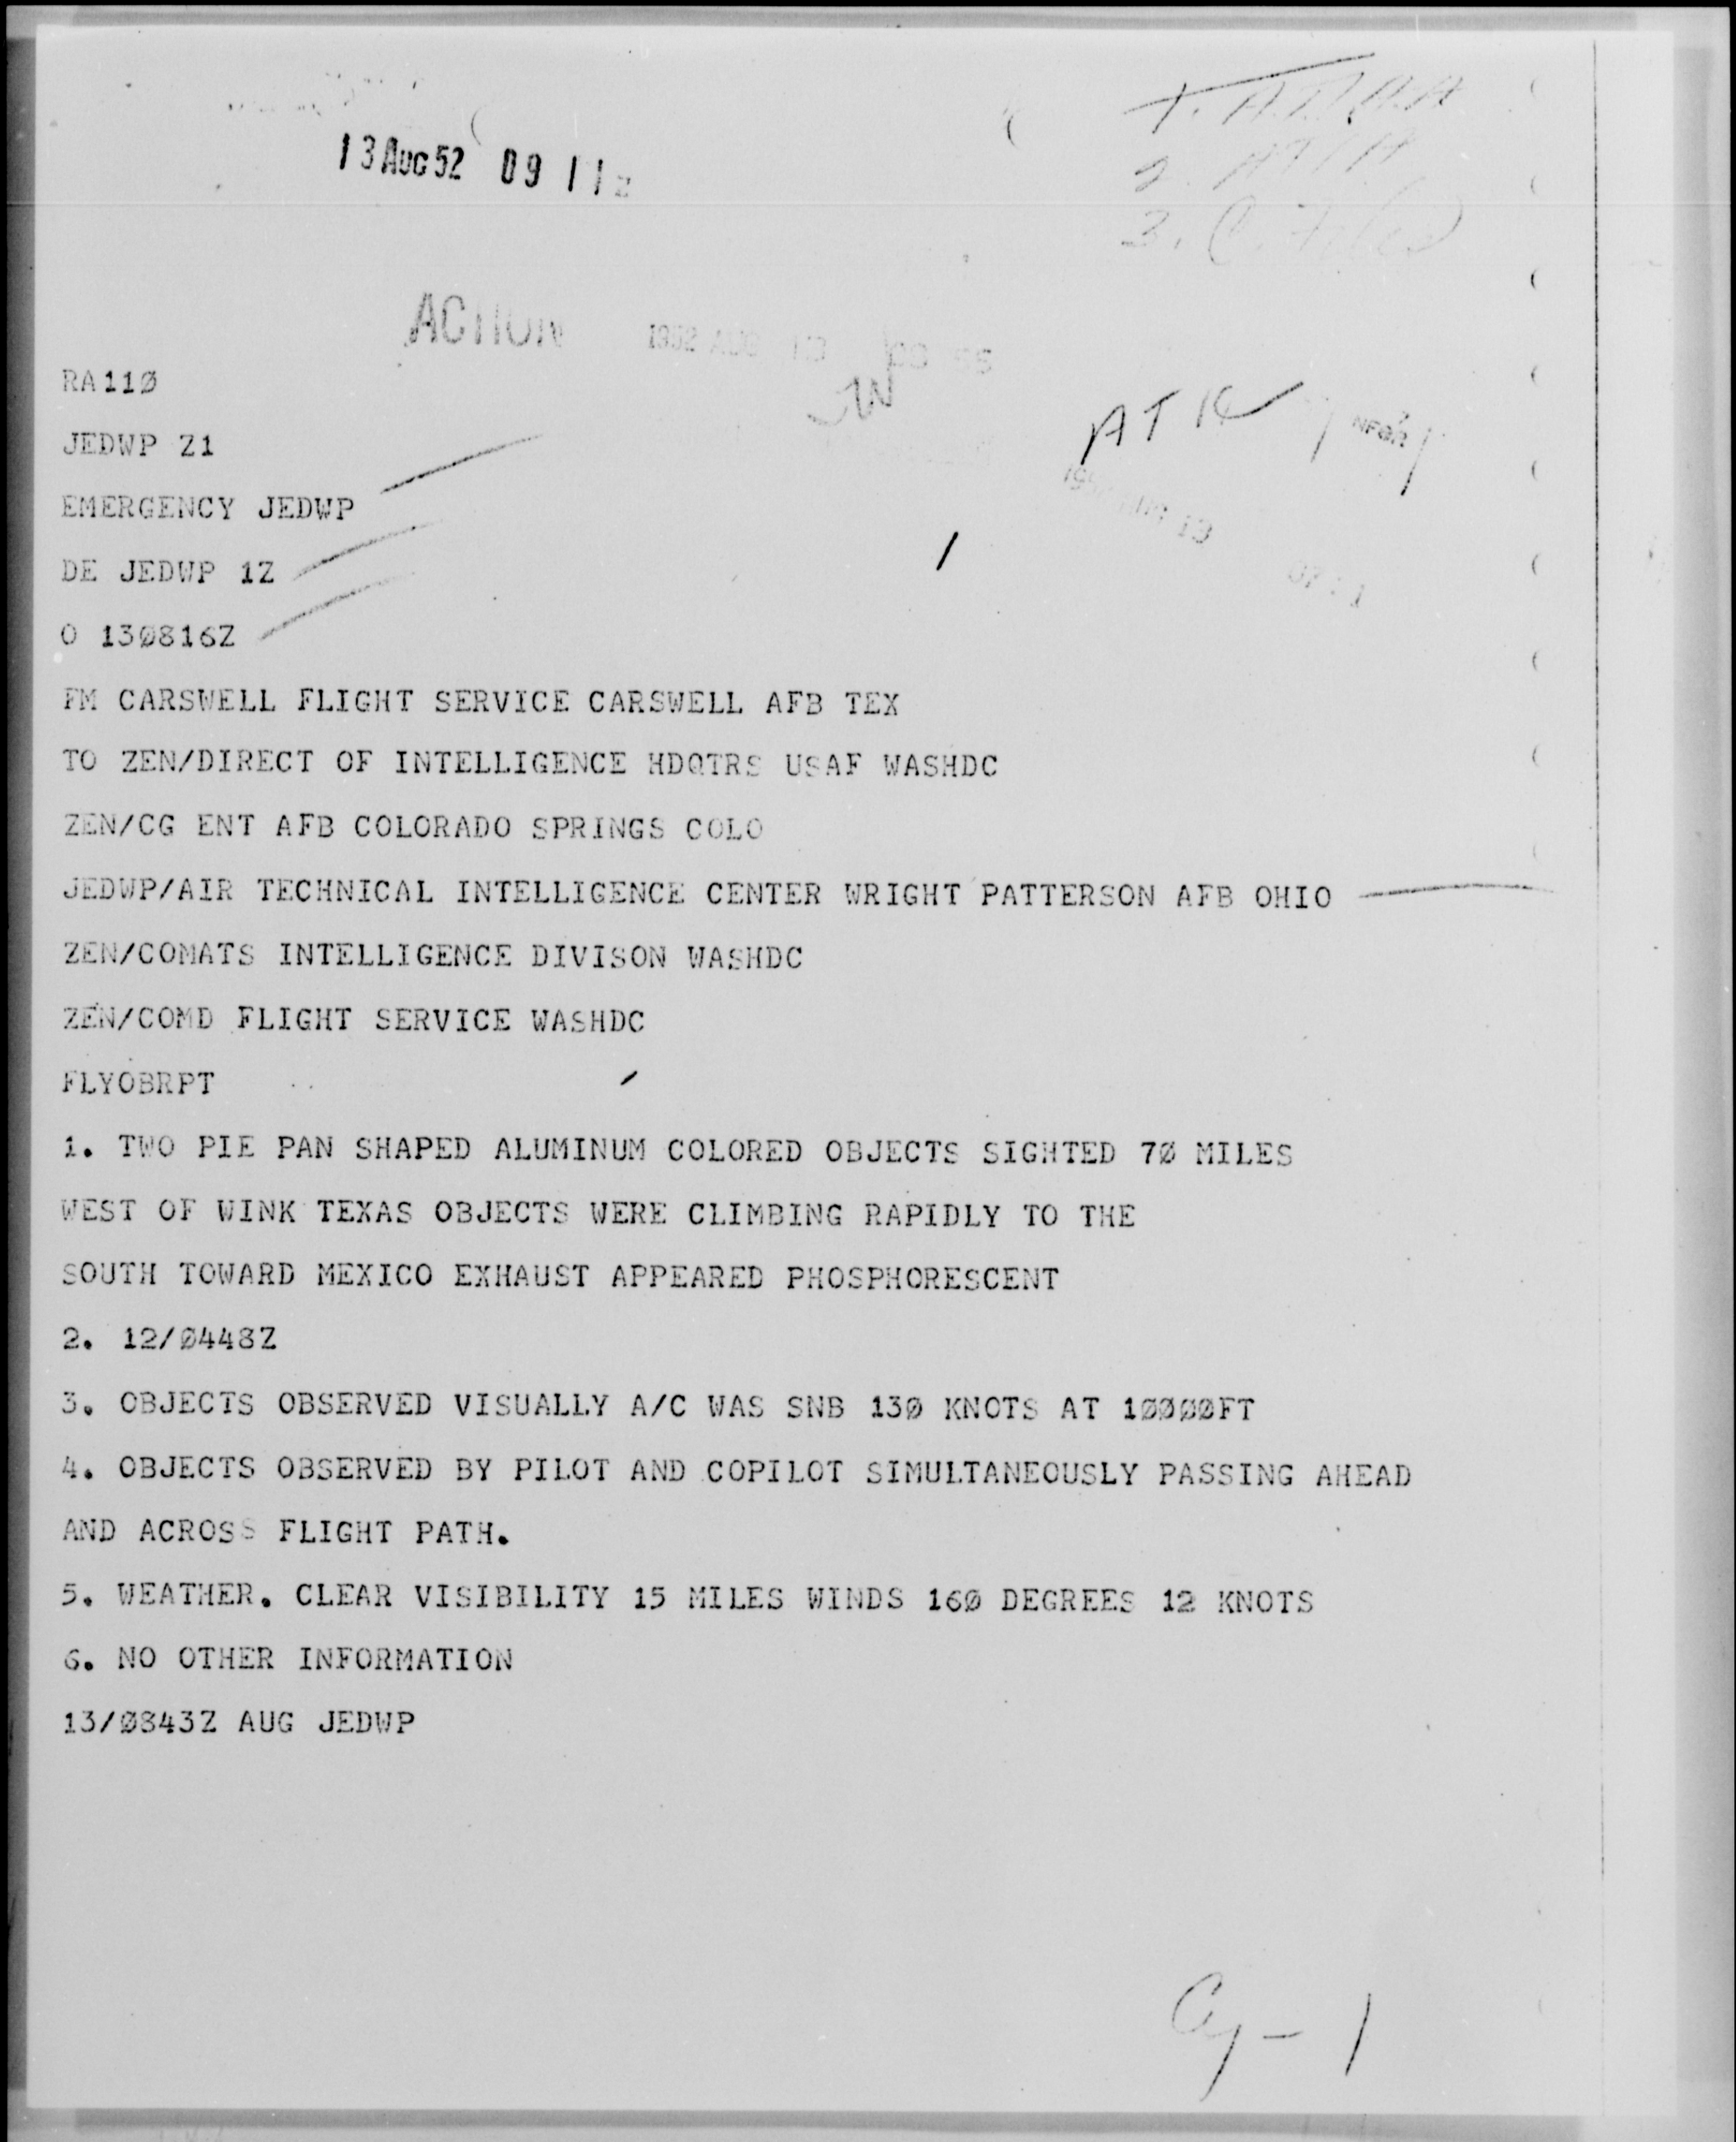 13 AUG 52 09 11Z
ACTION
1952 AUG 13
RA11Ø
JEDWP Z1
AT
EMERGENCY JEDWP
DE JEDWP 1Z
O 13Ø816Z
FM CARSWELL FLIGHT SERVICE CARSWELL AFB TEX
TO ZEN/DIRECT OF INTELLIGENCE HDQTRS USAF WASHDC
ZEN/CG ENT AFB COLORADO SPRINGS COLO
JEDWP/AIR TECHNICAL INTELLIGENCE CENTER WRIGHT PATTERSON AFB OHIO
ZEN/COMATS INTELLIGENCE DIVISON WASHDC
ZEN/COMD FLIGHT SERVICE WASHDC
FLYOBRPT
1. TWO PIE PAN SHAPED ALUMINUM COLORED OBJECTS SIGHTED 7Ø MILES
WEST OF WINK TEXAS OBJECTS WERE CLIMBING RAPIDLY TO THE
SOUTH TOWARD MEXICO EXHAUST APPEARED PHOSPHORESCENT
2. 12/Ø448Z
3. OBJECTS OBSERVED VISUALLY A/C WAS SNB 13Ø KNOTS AT 1ØØØØFT
4. OBJECTS OBSERVED BY PILOT AND COPILOT SIMULTANEOUSLY PASSING AHEAD
AND ACROSS FLIGHT PATH.
5. WEATHER. CLEAR VISIBILITY 15 MILES WINDS 16Ø DEGREES 12 KNOTS
6. NO OTHER INFORMATION
13/Ø843Z AUG JEDWP
Cy - 1